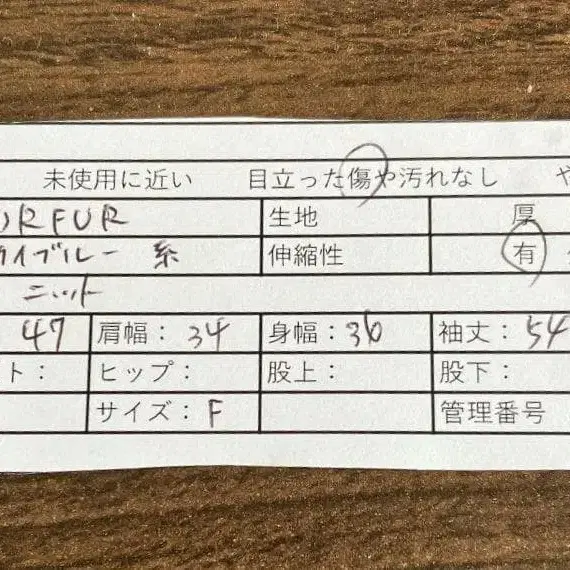 未使用に近い 目立った傷や汚れなし や
URFUR 生地 厚
イブルー系 伸縮性 有
ニット
47 肩幅：34 身幅：36 袖丈：54
ト： ヒップ： 股上： 股下：
サイズ：F 管理番号